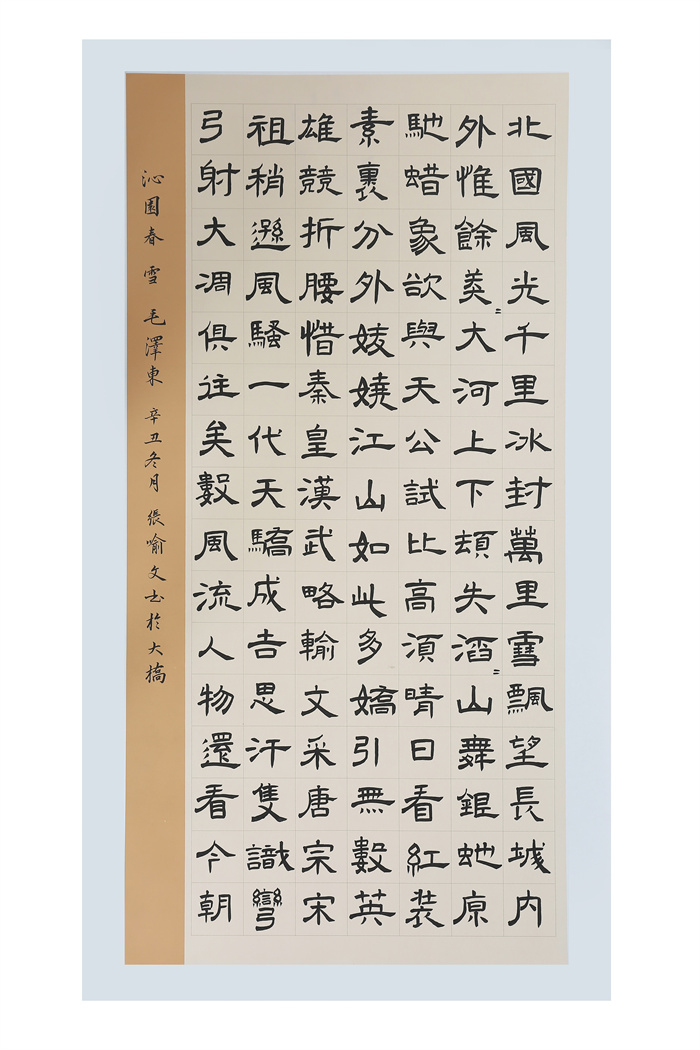 北國風光千里冰封萬里雪飄望長城内
外惟餘莽〻大河上下頓失滔〻山舞銀蛇原
馳蜡象欲與天公試比高湏晴日看紅装
素裹分外妖嬈江山如此多嬌引無數英
雄競折腰惜秦皇漢武略輸文采唐宗宋
祖稍遜風騷一代天驕成吉思汗隻識彎
弓射大凋俱往矣數風流人物還看今朝
沁園春 雪 毛澤東 辛丑冬月 張喻文书於大橋